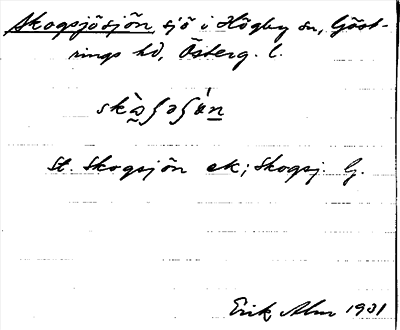 Skogsjösjön, sjö i Högby sn, Göst-
rings hd, Österg. l.
St. Skogsjön ek; Skogsj. G.
Erik Alm 1931